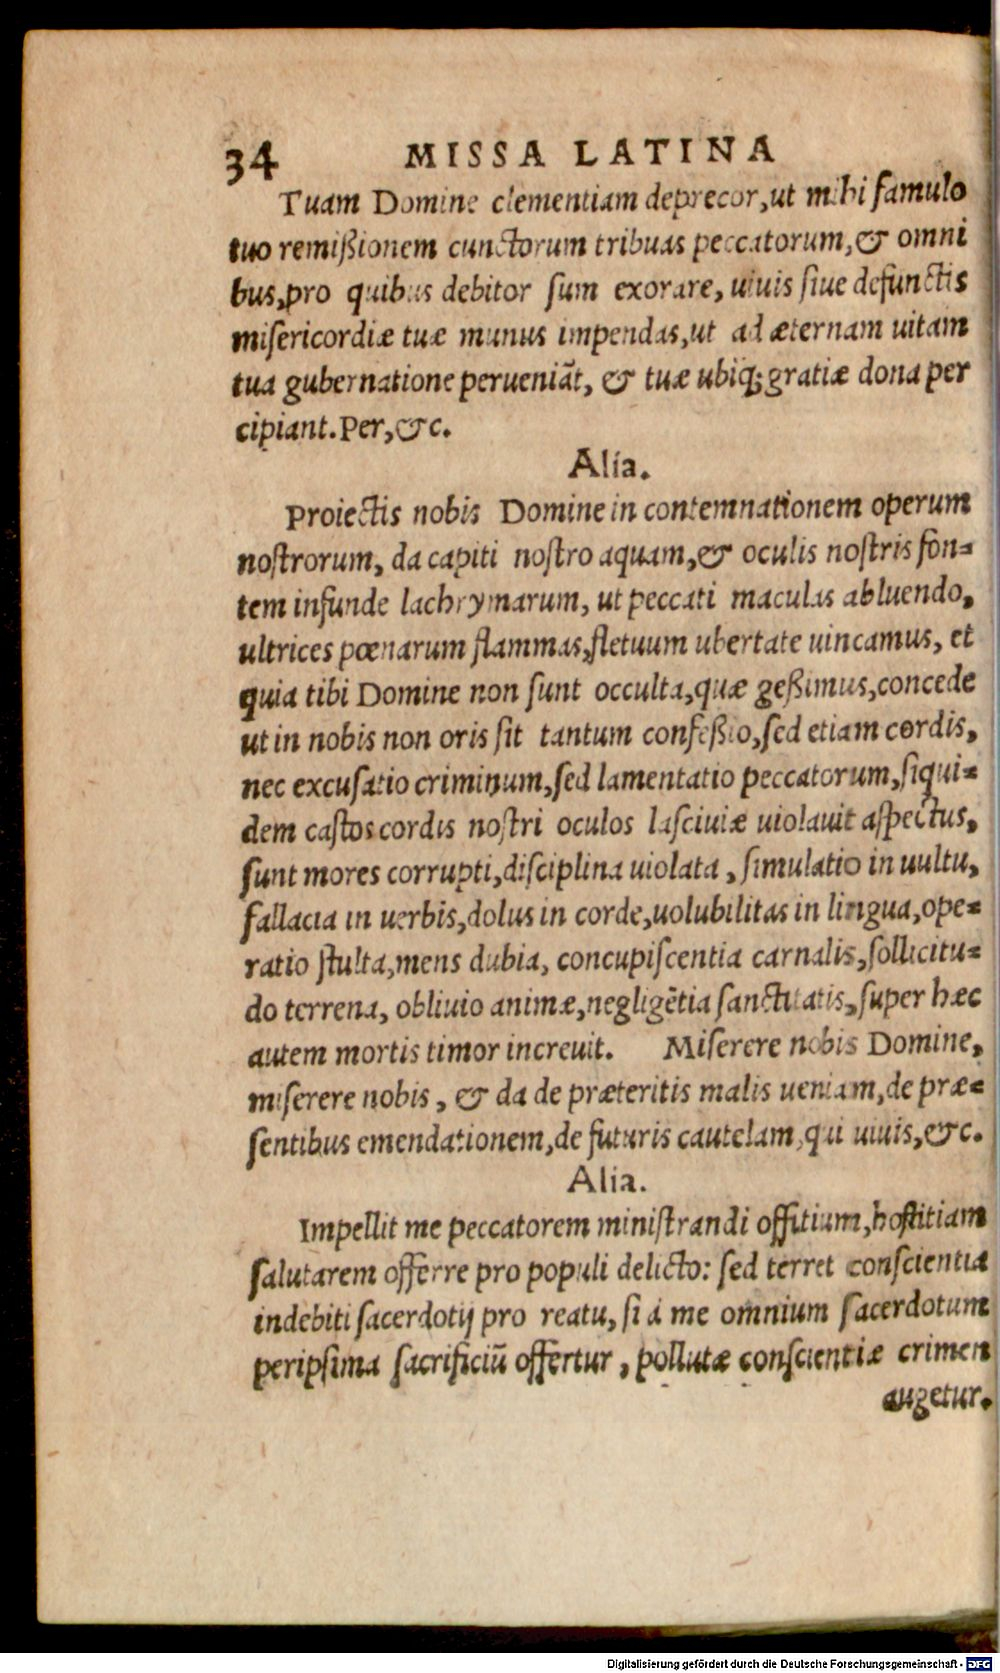 34 MISSA LATINA
Tuam Domine clementiam deprecor,ut mihi famulo
tuo remißionem cunctorum tribuas peccatorum,& omni
bus,pro quibus debitor ſum exorare, uiuis ſiue defunctis
miſericordiæ tuæ munus impendas,ut ad æternam uitam
tua gubernatione perueniãt, & tuæ ubiq; gratiæ dona per
cipiant. Per,&c.
Alia.
Proiectis nobis Domine in contemnationem operum
noſtrorum, da capiti noſtro aquam,& oculis noſtris fon=
tem infunde lachrymarum, ut peccati maculas abluendo,
ultrices pœnarum flammas,fletuum ubertate uincamus, et
quia tibi Domine non ſunt occulta,quæ geßimus,concede
ut in nobis non oris ſit tantum confeßio,ſed etiam cordis,
nec excuſatio criminum,ſed lamentatio peccatorum,ſiqui=
dem caſtos cordis noſtri oculos laſciuiæ uiolauit aſpectus,
ſunt mores corrupti,diſciplina uiolata , ſimulatio in uultu,
fallacia in uerbis,dolus in corde,uolubilitas in lingua,ope=
ratio ſtulta,mens dubia, concupiſcentia carnalis,ſollicitu=
do terrena, obliuio animæ,negligẽtia ſanctitatis,ſuper hæc
autem mortis timor increuit. Miſerere nobis Domine,
miſerere nobis , & da de præteritis malis ueniam,de præ=
ſentibus emendationem,de futuris cautelam,qui uiuis,&c.
Alia.
Impellit me peccatorem miniſtrandi offitium,hoſtitiam
ſalutarem offerre pro populi delicto: ſed terret conſcientia
indebiti ſacerdotij pro reatu, ſi á me omnium ſacerdotum
peripſima ſacrificiũ offertur , pollutæ conſcientiæ crimen
augetur.
Digitalisierung gefördert durch die Deutsche Forschungsgemeinschaft - DFG